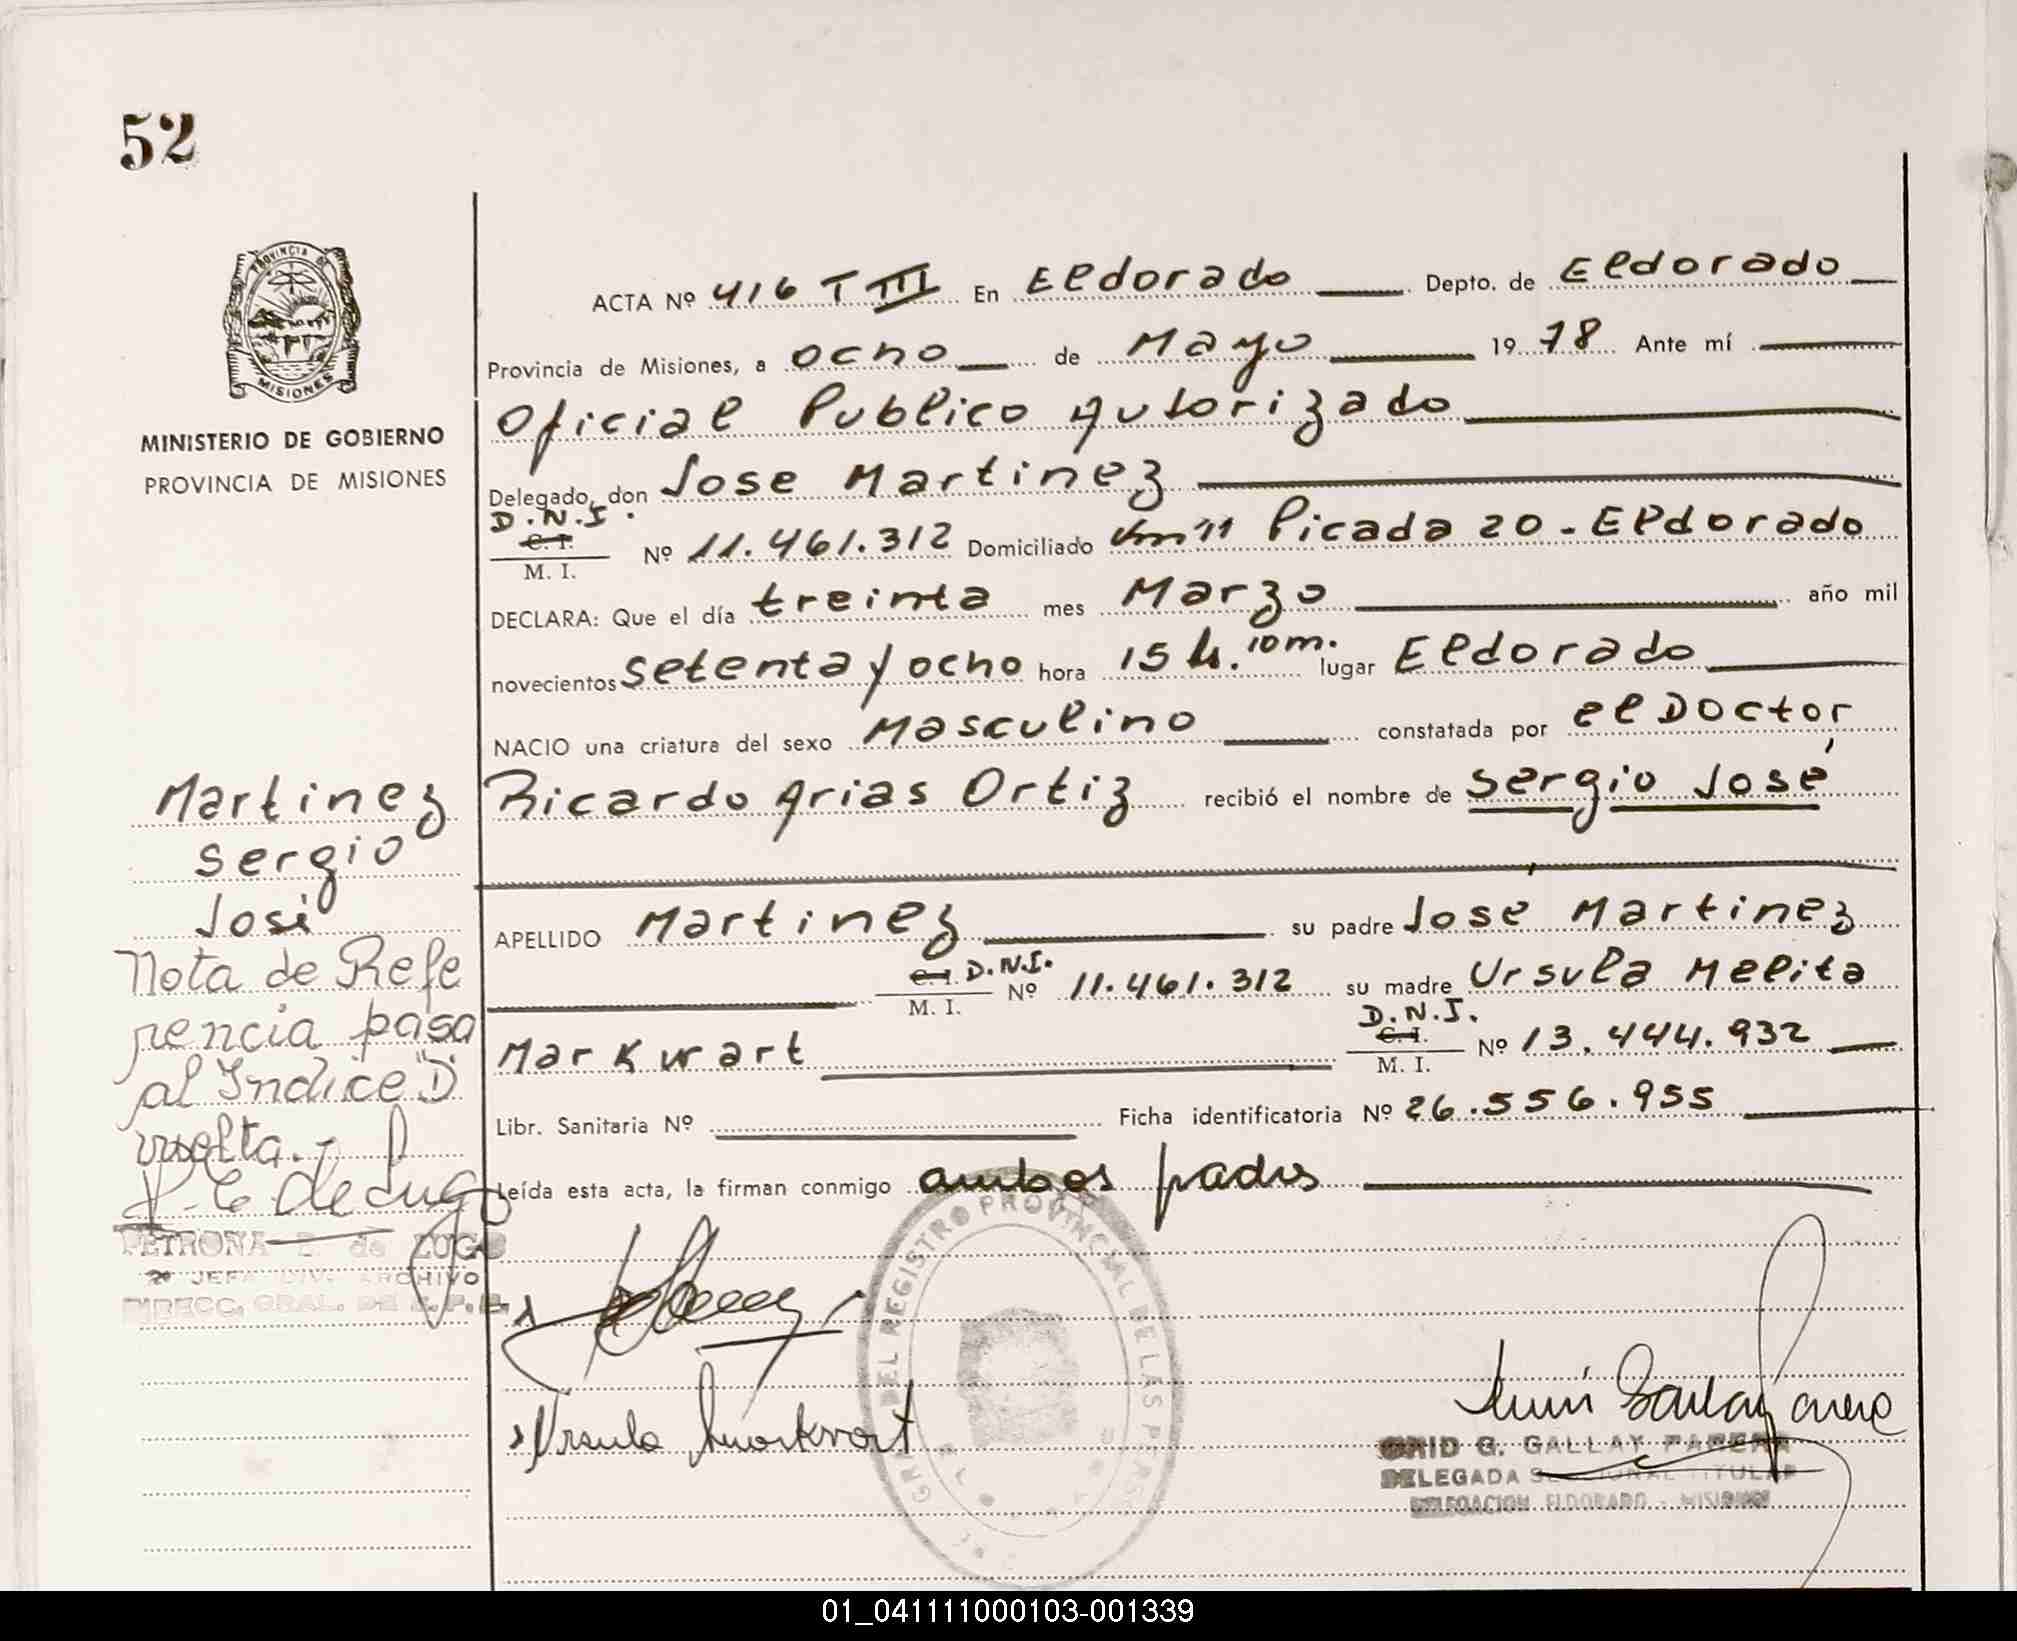 52
PROVINCIA DE
MISIONES
MINISTERIO DE GOBIERNO
PROVINCIA DE MISIONES
ACTA Nº 416 T III En Eldorado Depto. de Eldorado
Provincia de Misiones, a ocho de Mayo 19 78 Ante mí
Oficial Publico Autorizado
Delegado, don Jose Martinez
D.N.I.
C. I.
M. I. Nº 11.461.312 Domiciliado Km 11 Picada 20 - Eldorado
DECLARA: Que el día treinta mes Marzo año mil
novecientos setenta y ocho hora 15 h. 10 m. lugar Eldorado
NACIO una criatura del sexo Masculino constatada por el Doctor
Ricardo Arias Ortiz recibió el nombre de Sergio José
APELLIDO Martinez su padre José Martinez
C. I. D.N.I.
M. I. Nº 11.461.312 su madre Ursula Melita
D.N.I.
Markwart C. I.
M. I. Nº 13.444.932
Libr. Sanitaria Nº Ficha identificatoria Nº 26.556.955
Leída esta acta, la firman conmigo ambos padres
Martinez
Sergio
José
Nota de Refe
rencia pasa
al Indice "D"
vuelta.-
PETRONA de LUGO
2º JEFA DIV. ARCHIVO
DIRECC. GRAL. DE R. P. P.
Ursula Markwart
GRAL DEL REGISTRO PROVINCIAL DE LAS PERS
G. GALLAY
DELEGADA TITULAR
DELEGACION ELDORADO - MISIONES
01_041111000103-001339